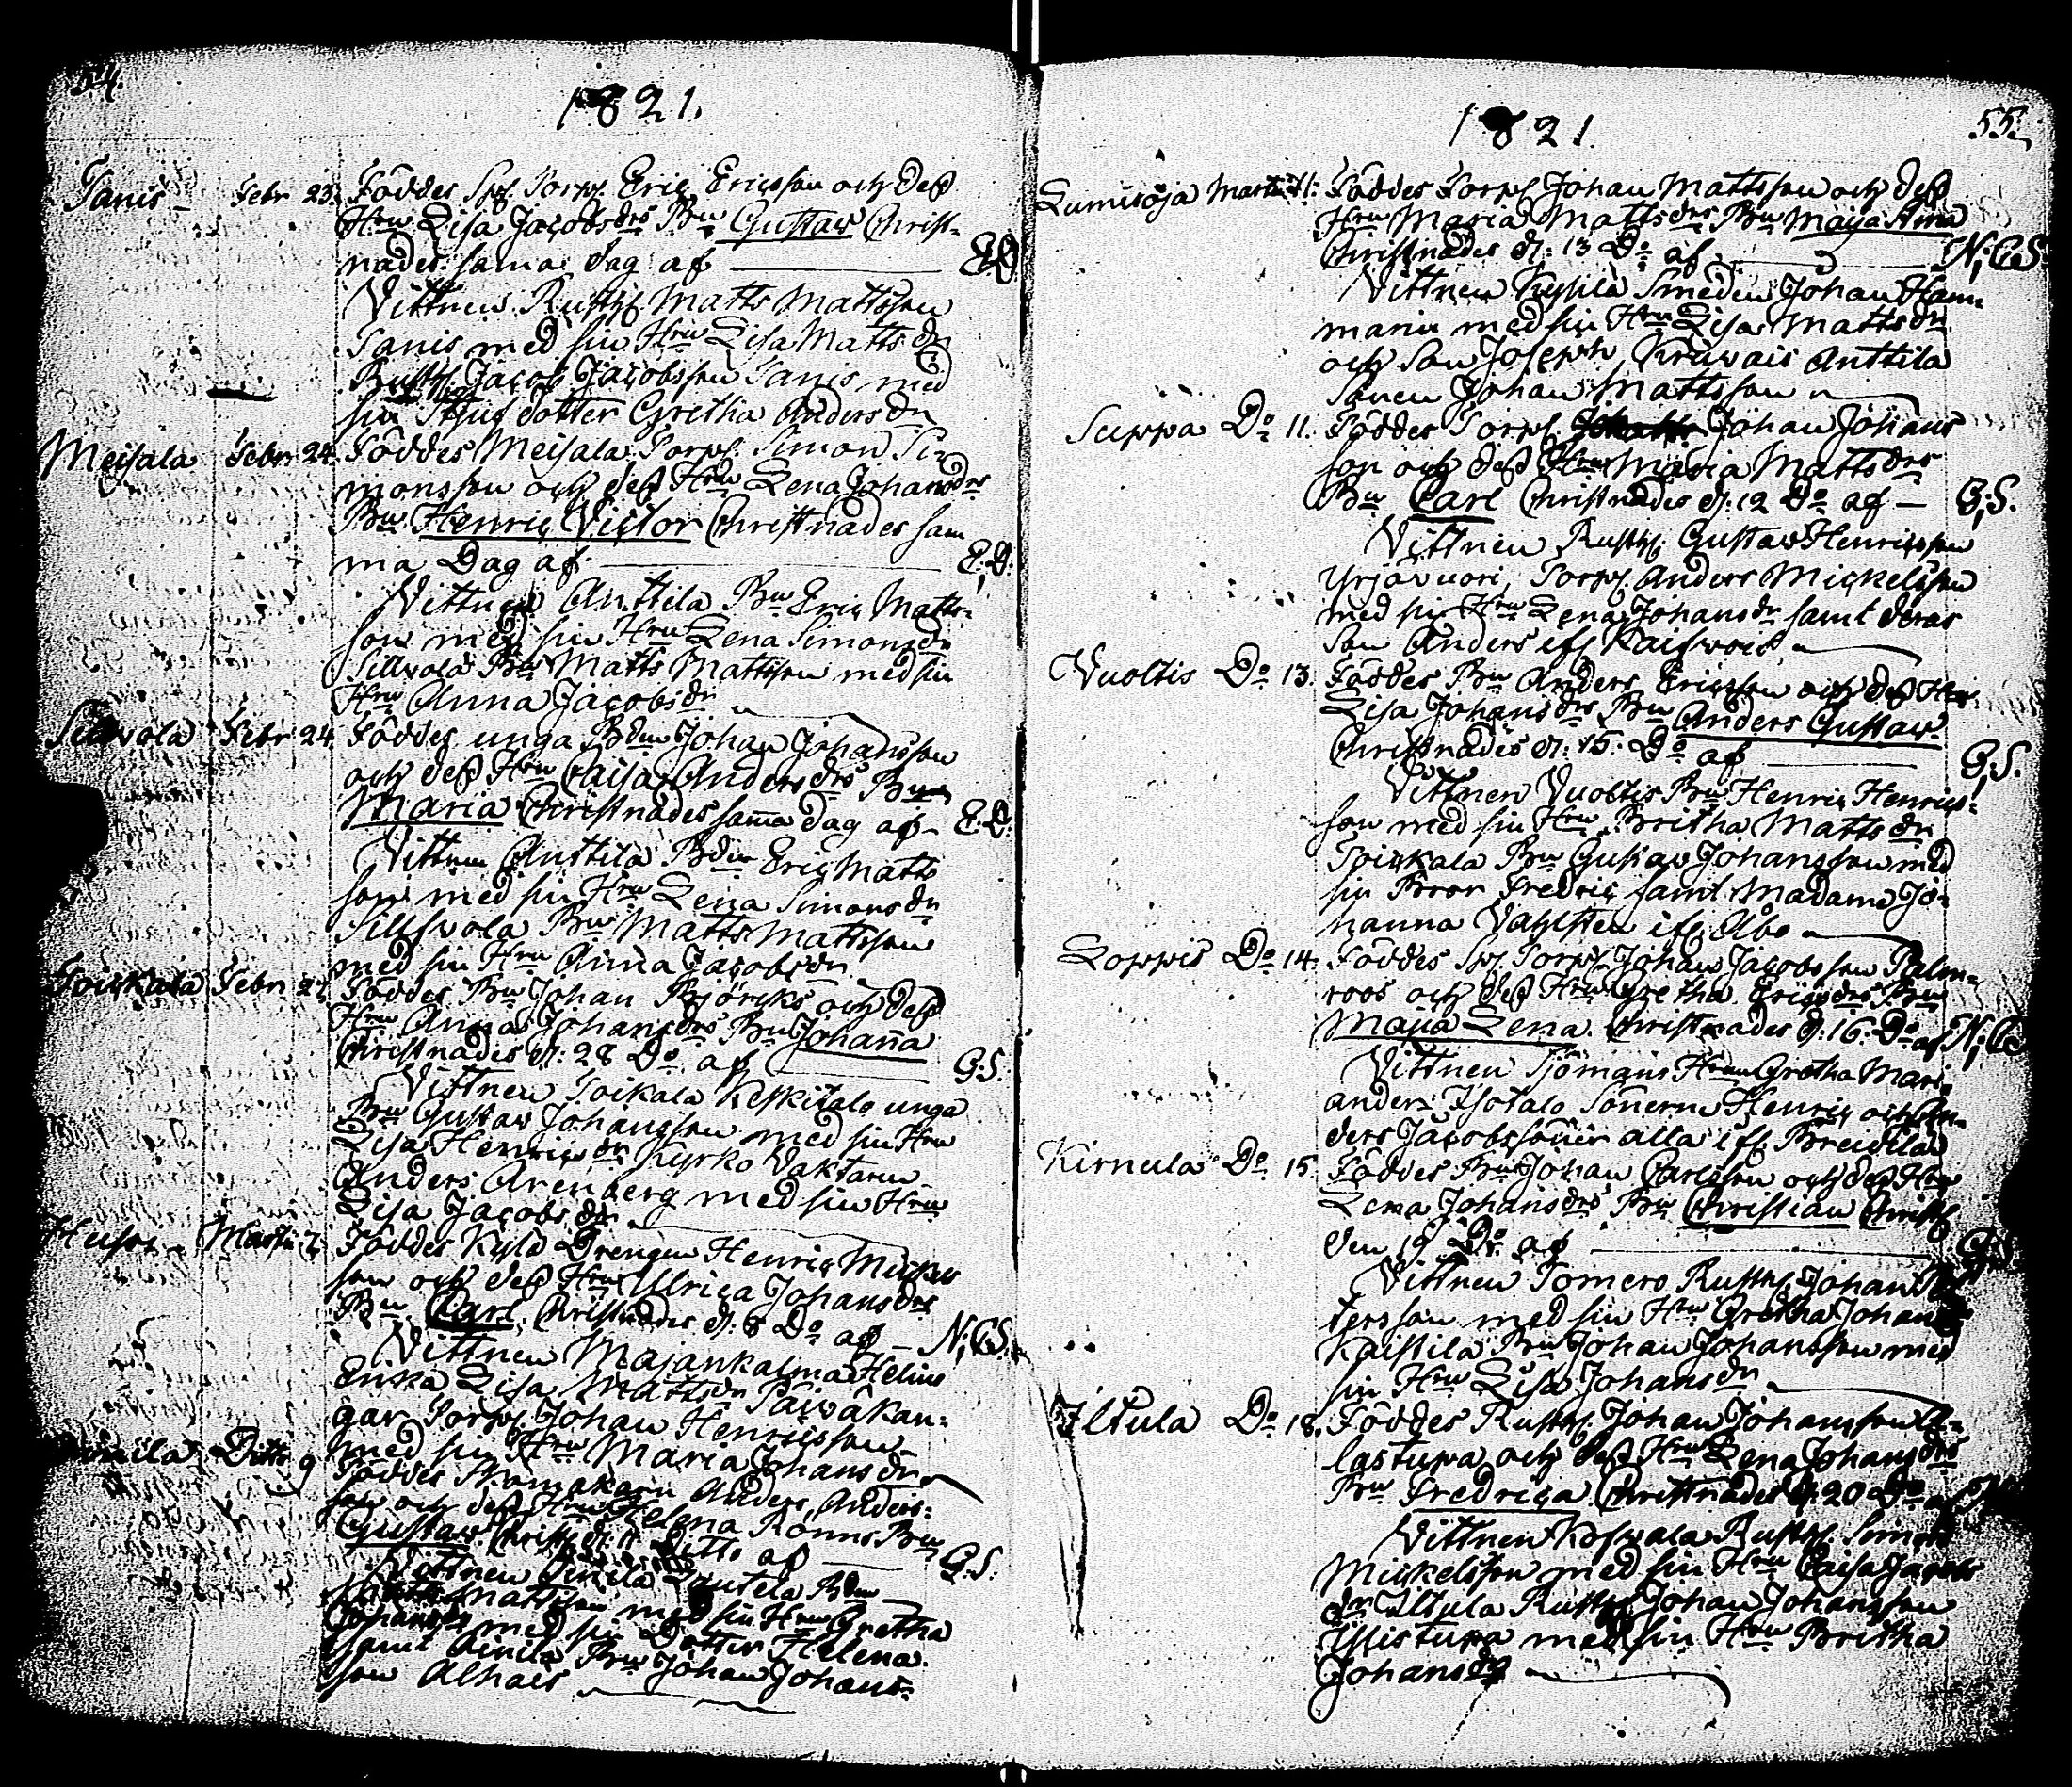 54.
1821.
Tanis Febr 23. Föddes Spl Torpl Eric Ericsson och dess
Hru Lisa Jacobsdrs Bn Gustav Christ-
nades sama dag af E D
Vittnen Rusthl Matts Mattsson
Tanis med sin Hru Lisa Matts dr
Rusthl Jacob Jacobsson Tanis med
sin dotter Gretha Anders dr
Meisala Febr 24. Föddes Meisala Torpl. Simon Si-
monsson och dess Hru Lena Johansdrs
Bn Henric Victor Christnades sam
ma Dag af E. D.
Vittnen Anttila Bn Eric Matts-
son med sin Hru Lena Simonsdr
Sillvola Bn Matts Mattsson med sin
Hru Anna Jacobsdr
Sillvola Febr 24. Föddes unga Bdn Johan Johansson
och dess Hru Caisa Andersdrs Bn
Maria Christnades sama dag af E. D.
Vittnen Anttila Bdn Eric Matts
son med sin Hru Lena Simonsdr
Sillvola Bn Matts Mattsson
med sin Hru Anna Jacobsdr.
Toickala Febr Föddes Bn Johan Björcks och dess
Hru Anna Johansdrs Bn Johana
Christnades d. 28 Do af G. S.
Vittnen Toikala Keskitalo unga
Bn Gustav Johansson med sin Hru
Lisa Henricsdr Kyrko Vaktaren
Anders Arenberg med sin Hru
Lisa Jacobs dr
Martii Föddes Kylä Drengen Henric Mickels
son och dess Hru Ulrica Johansdrs
Bn Carl Christnades d. 8 Do af N. C S.
Vittnen Majankalma Helius
Enka Lisa Mattsdr Päiväkan-
gar Torpl Johan Henricsson
med sin Hru Maria Johansdr
Ditto 9 Föddes Skomakarn Anders Anders-
son och dess Hru Helena Rönns Bn
Gustav Christn. d. 11 Ditto af G. S.
Vittnen Lautela Bdn
Mattsson med sin Hru Gretha
Johansdr med sin Dotter Helena
samt Bn Johan Johans-
son Alhais
1821.
55.
Lumisoja Martii 11. Föddes Torpl Johan Mattsson och dess
Hru Maria Mattsdrs Bn Maija Stina
Christnades d. 13 Do af N. C S
Vittnen Kyhlä Smeden Johan Ham-
marin med sin Hru Lisa Mattsdr
och Son Joseph Kråvais Anttila
Sonen Johan Mattsson
Suppa Do 11. Föddes Torpl. Johan Johans
son och dess Hru Maria Mattsdrs
Bn Carl Christnades d. 12 Do af G. S.
Vittnen Rusthl Gustav Henricsson
Yrjävuori, Torpl Anders Mickelsson
med sin Hru Lena Johansdr samt deras
Son Anders ifl Kaisvois
Vuoltis Do 13. Föddes Bn Anders Ericsson och dess Hru
Lisa Johansdrs Bn Anders Gustav
Christnades d. 15. Do af G. S.
Vittnen Vuoltis Bn Henric Henrics-
son med sin Hru Britha Matts dr
Toickala Bn Gustav Johansson med
sin Bror Fredric samt Madame Jo-
hanna Vahlsten ifl Åbo
Loppis Do 14. Föddes Spl Torpl. Johan Jacobsson Palm-
roos och dess Hru Gretha Ericsdrs Bn
Maja Lena Christnades d. 16. Do af N. C
Vittnen Sjömans Hrun Gretha Mari
ander. Isotalo Sönerne Henric och An-
ders Jacobssöner alla ifl Breidila
Kirnula Do 15 Föddes Bn Johan Carlsson och dess Hru
Lena Johansdrs Bn Christian Christ
den 19 Do af
Vittnen Tomero Rusthl Johan Pe
tersson med sin Hru Gretha Johans
Kaistila Bn Johan Johansson med
sin Hru Lisa Johansdr
Iltula Do 18. Föddes Rusthl Johan Johansson A-
lastupa och dess Hru Lena Johansdrs
Bn Fredrica Christnades d. 20 Do af
Vittnen Koskala Rusthl Simon
Mickelsson med sin Hru Caisa Jacobs
dr Iltula Rusthl Johan Johansson
Ylistupa med sin Hru Britha
Johansdr